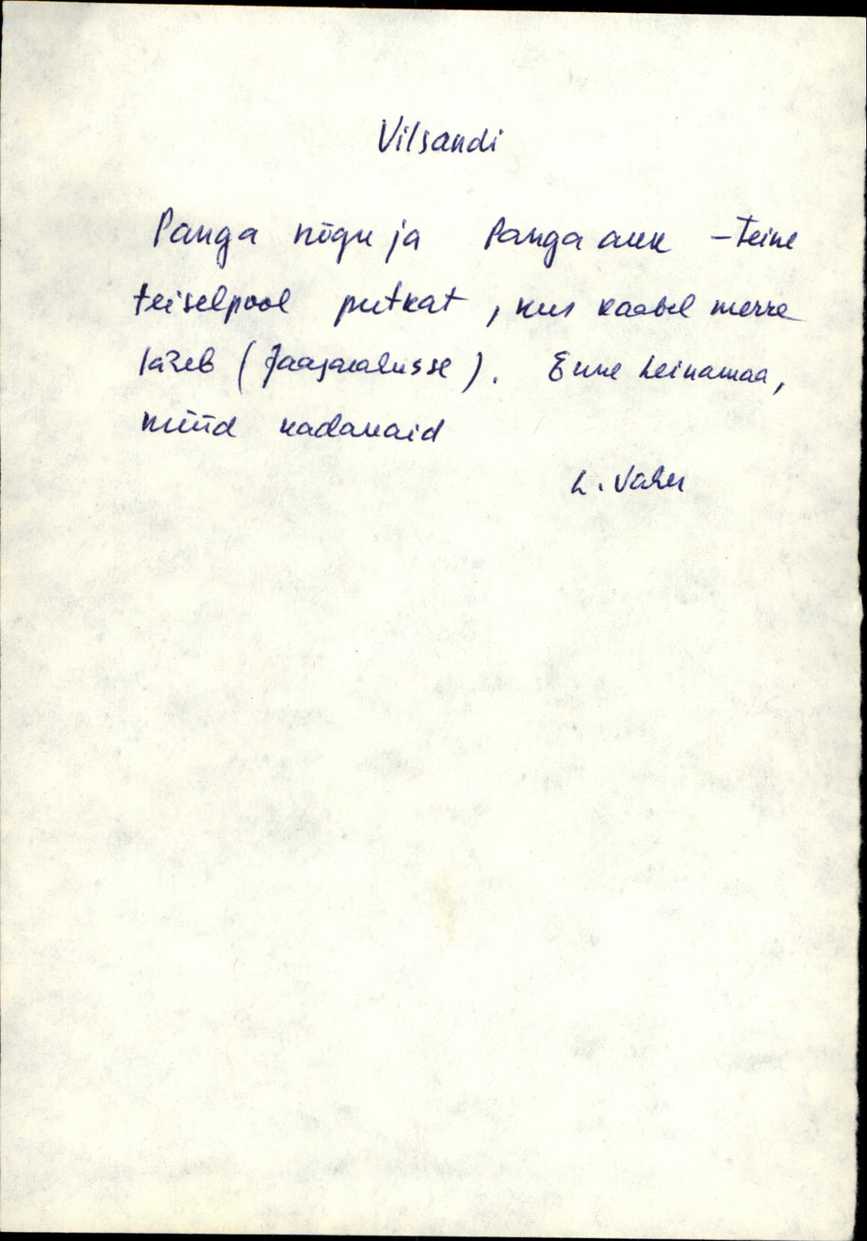 Vilsandi
Panga nõgu ja Panga auk – teine
teiselpool putkat, kus kaabel merre
läheb (Jaagarahusse). Enne heinamaa,
nüüd kadakaid
L. Vaher